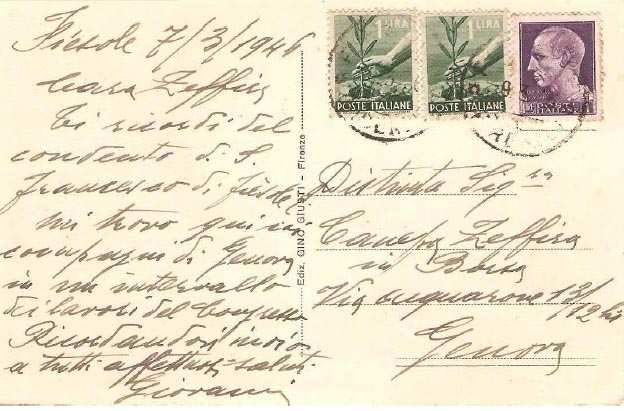 Fiesole 7/3/1946
Cara Zeffira
Ti ricordi del
convento di S.
Francesco di Fiesole
mi trovo qui coi
compagni di Genova
in un intervallo
dei lavori del Congresso
Ricordandovi invio
a tutti affettuosi saluti
Giovanni
Ediz. GINO GIUSTI - Firenze
1 LIRA
POSTE ITALIANE
1 LIRA
POSTE ITALIANE
Distinta Sig.ra
Canepa Zeffira
in
Via Acquarone 13/
Genova